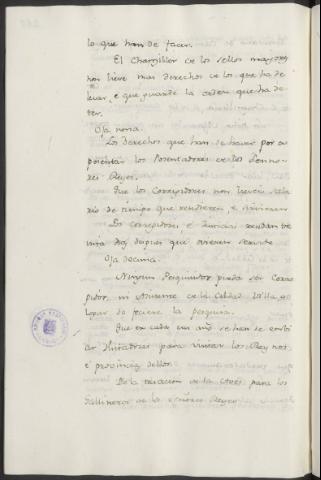 lo que han de facer.
El Chanciller de los sellos mayores
non lieve mas derechos de los que ha de
levar, e que guarde la orden que ha de
tener.
Oja nona.
Los derechos que han de haver por su
los Aposentadores de los Sennores
Reyes.
Que los Corregidores non lieven salario
de tiempo que
Los corregidores e Justicias residan treinta
dias despues que ovieren
Oja decima.
Ningun Pesquisidor pueda ser Corregidor,
ni Asistente de la Cibdad, Villa, o
Logar do ficiere la pesquisa.
Que en cada un año se han de enbiar
para visitar los Reynos,
e provincias dellos.
De la tasacion de las Aves para los
Gallineros de los señores Reyes